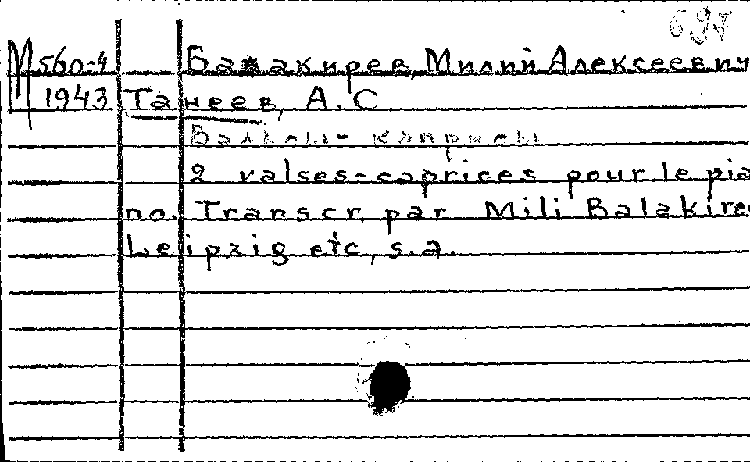 697
М 560-4 Балакирев, Милий Алексеевич
1943 Танеев, А.С
Вальсы-каприсы
2 valses-caprices pour le pia
no. Transcr. par Mili Balakirew
Leipzig etc, s.a.